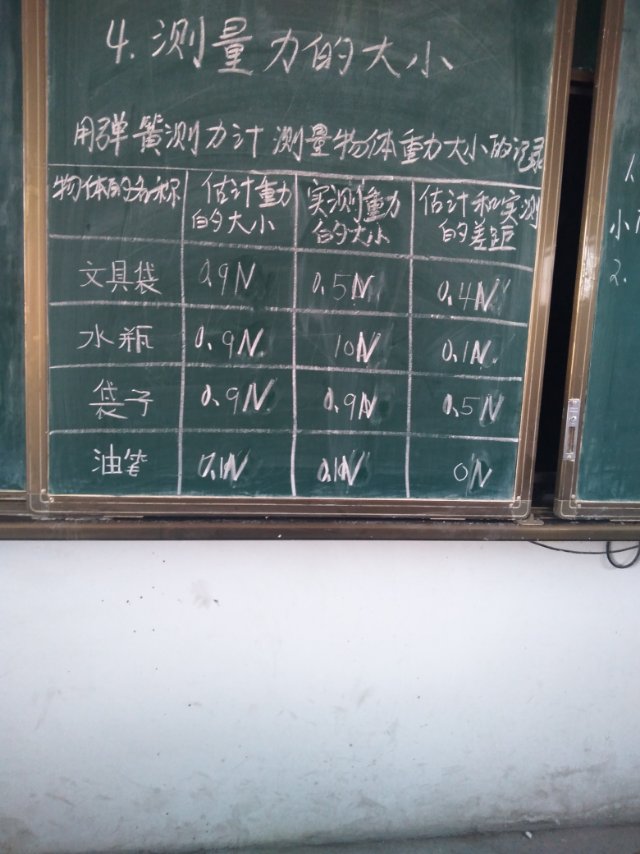 4.测量力的大小
用弹簧测力计测量物体重力大小的记录
物体的名称 估计重力的大小 实测重力的大小 估计和实测的差距
文具袋 0.9N 0.5N 0.4N
水瓶 0.9N 10N 0.1N
袋子 0.9N 0.9N 0.5N
油笔 0.1N 0.1N 0N
1.
2.